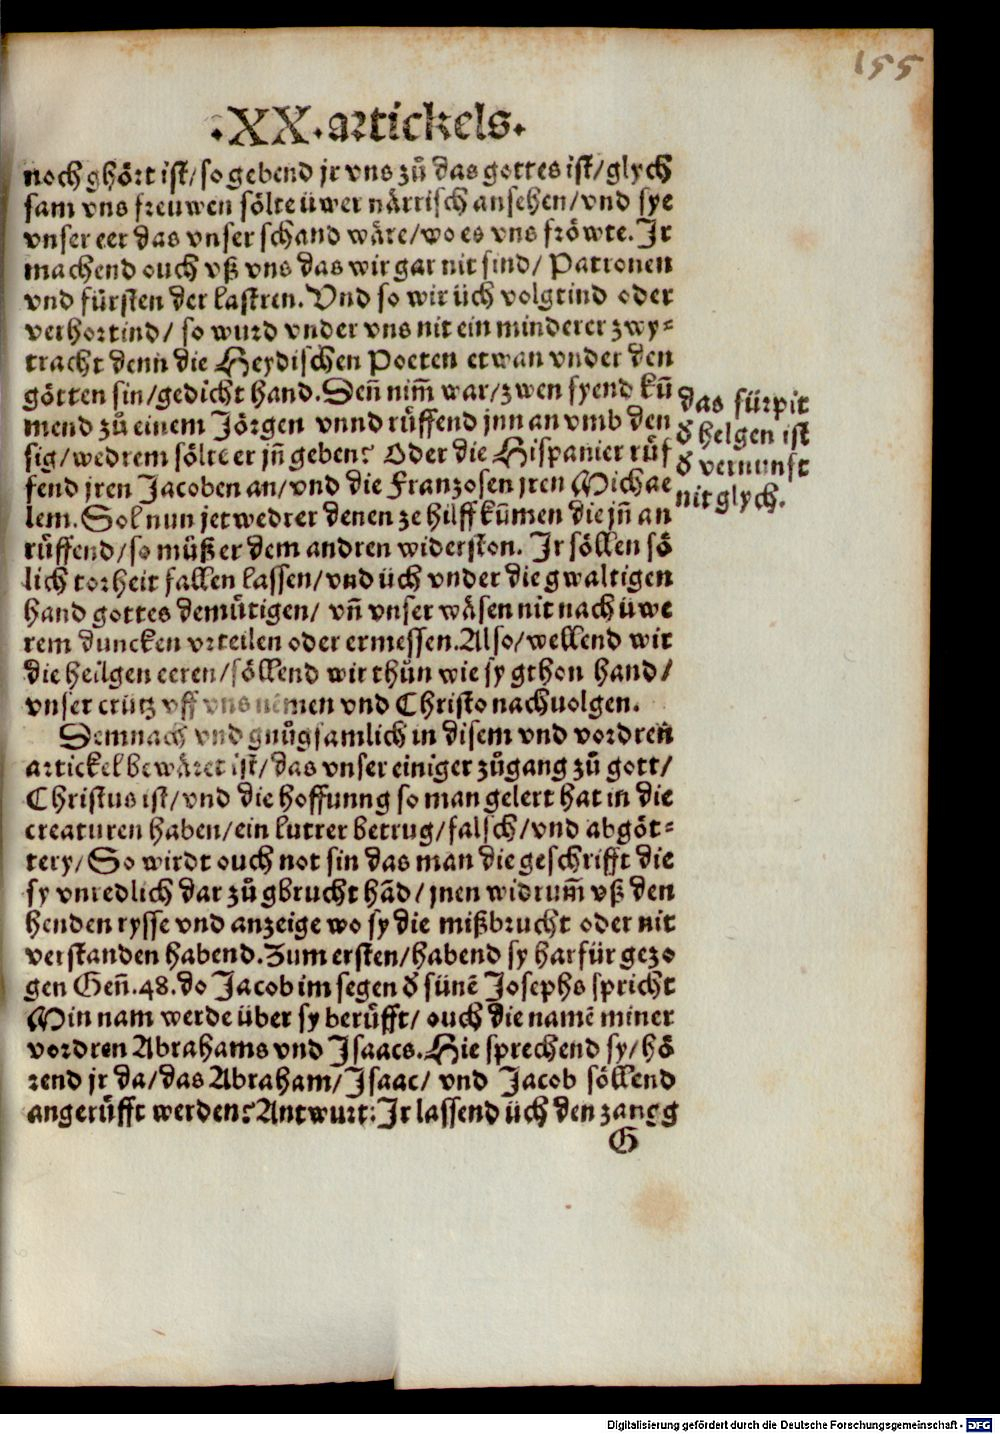 155
·XX·artickels·
noch ghört ist/so gebend jr vns zů das gottes ist/glych
sam vns freuwen sölte üwer närrisch ansehen/vnd sye
vnser eer das vnser schand wäre/wo es vns fröwte. Ir
machend ouch vß vns das wir gar nit sind/ Patronen
vnd fürsten der lastren. Vnd so wir üch volgtind oder
verhortind/ so wurd vnder vns nit ein minderer zwy⸗
tracht denn die Heydischen Poeten etwan vnder den
götten sin/gedicht hand. Deñ nim̃ war/zwen syend kū
mend zů einem Jörgen vnnd růffend jnn an vmb den
sig/wedrem sölte er jñ geben? Oder die Hispanier růf
fend jren Jacoben an/vnd die Franzosen jren Michae
lem. Sol nun jetwedrer denen ze hilff kūmen die jñ an
růffend/so můß er dem andren widerston. Ir söllen sö
lich torheit fallen lassen/vnd üch vnder die gwaltigen
hand gottes demůtigen/ vñ vnser wäsen nit nach üwe
rem duncken vrteilen oder ermessen. Also/wellend wir
die heilgen eeren/söllend wir thůn wie sy gthon hand/
vnser crütz vff vns nēmen vnd Christo nachuolgen.
Demnach vnd gnůgsamlich in disem vnd vordren
artickel bewäret ist/das vnser einiger zůgang zů gott/
Christus ist/vnd die hoffnung so man gelert hat in die
creaturen haben/ein lutrer betrug/falsch/vnd abgöt⸗
tery/ So wirdt ouch not sin das man die geschrifft die
sy vnredlich dar zů gbrucht hād/jnen widrum̃ vß den
henden rysse vnd anzeige wo sy die mißbrucht oder nit
verstanden habend. Zum ersten/habend sy harfür gezo
gen Geñ.48.do Jacob im segen ď sünē Josephs spricht
Min nam werde über sy berůfft/ ouch die namē miner
vordren Abrahams vnd Isaacs. Hie sprechend sy/hö
rend jr da/das Abraham/Isaac/ vnd Jacob söllend
angerůfft werden? Antwurt: Ir lassend üch den zangg
G
das fürpit
ď helgen ist
ď vernunft
nit glych.
Digitalisierung gefördert durch die Deutsche Forschungsgemeinschaft - DFG